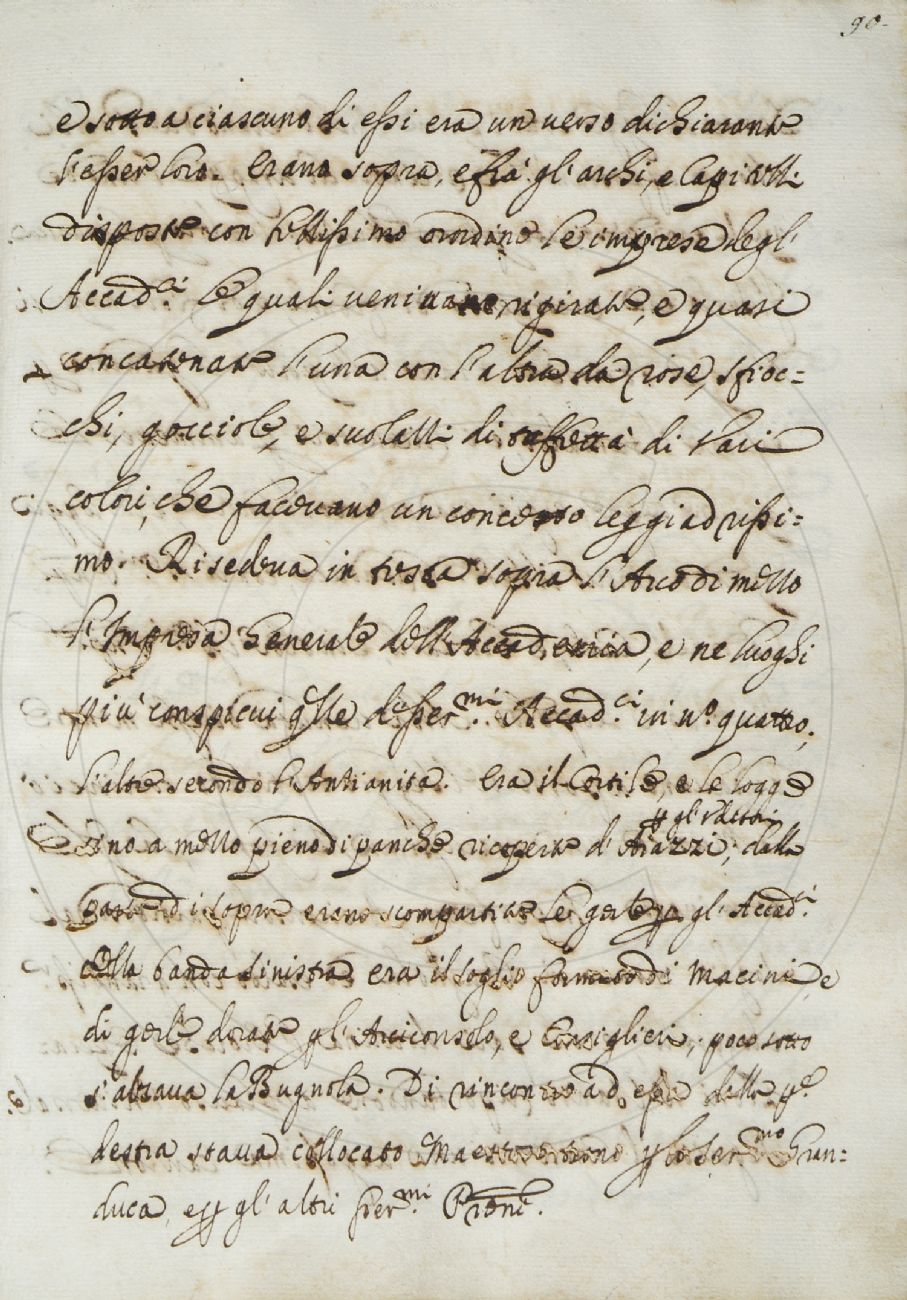 90.
e sotto a ciascuno di essi era un verso dichiarante
l'esser loro. Erano sopra, e fra gl'archi, e
disposte con bellissimo ordine le imprese degl'
Accad.ci le quali venivano rigirate, e quasi
concatenate l'una con l'altra da rose, sfioc=
chi, gocciole, e svolazzi di taffettà di varî
colori, che facevano un concerto leggiadrissi=
mo. Risedeva in testa sopra l'Arco di mezzo
l'Impresa Generale dell'Accademia, e ne luoghi
più conspicui qlle de Ser.mi Accad.ci in n.o quattro,
l'altre secondo l'Antianita. Era il Cortile, e le logge
sino a mezzo pieno di panche ricoperte d'Arazzi; dalla
parte di sopra erano scompartite le gerle p gl'Accad.ci
della banda sinistra era il soglio formato di Macini, e
di gerle dorate p l'Arciconsolo, e Consiglieri, poco sotto
s'alzava la Bugnola. Di rincontro ad epa dalla pte
destra stava collocato Maestoso trono p lo Ser.mo Gran=
duca, e p gl'altri Ser.mi Prōni.